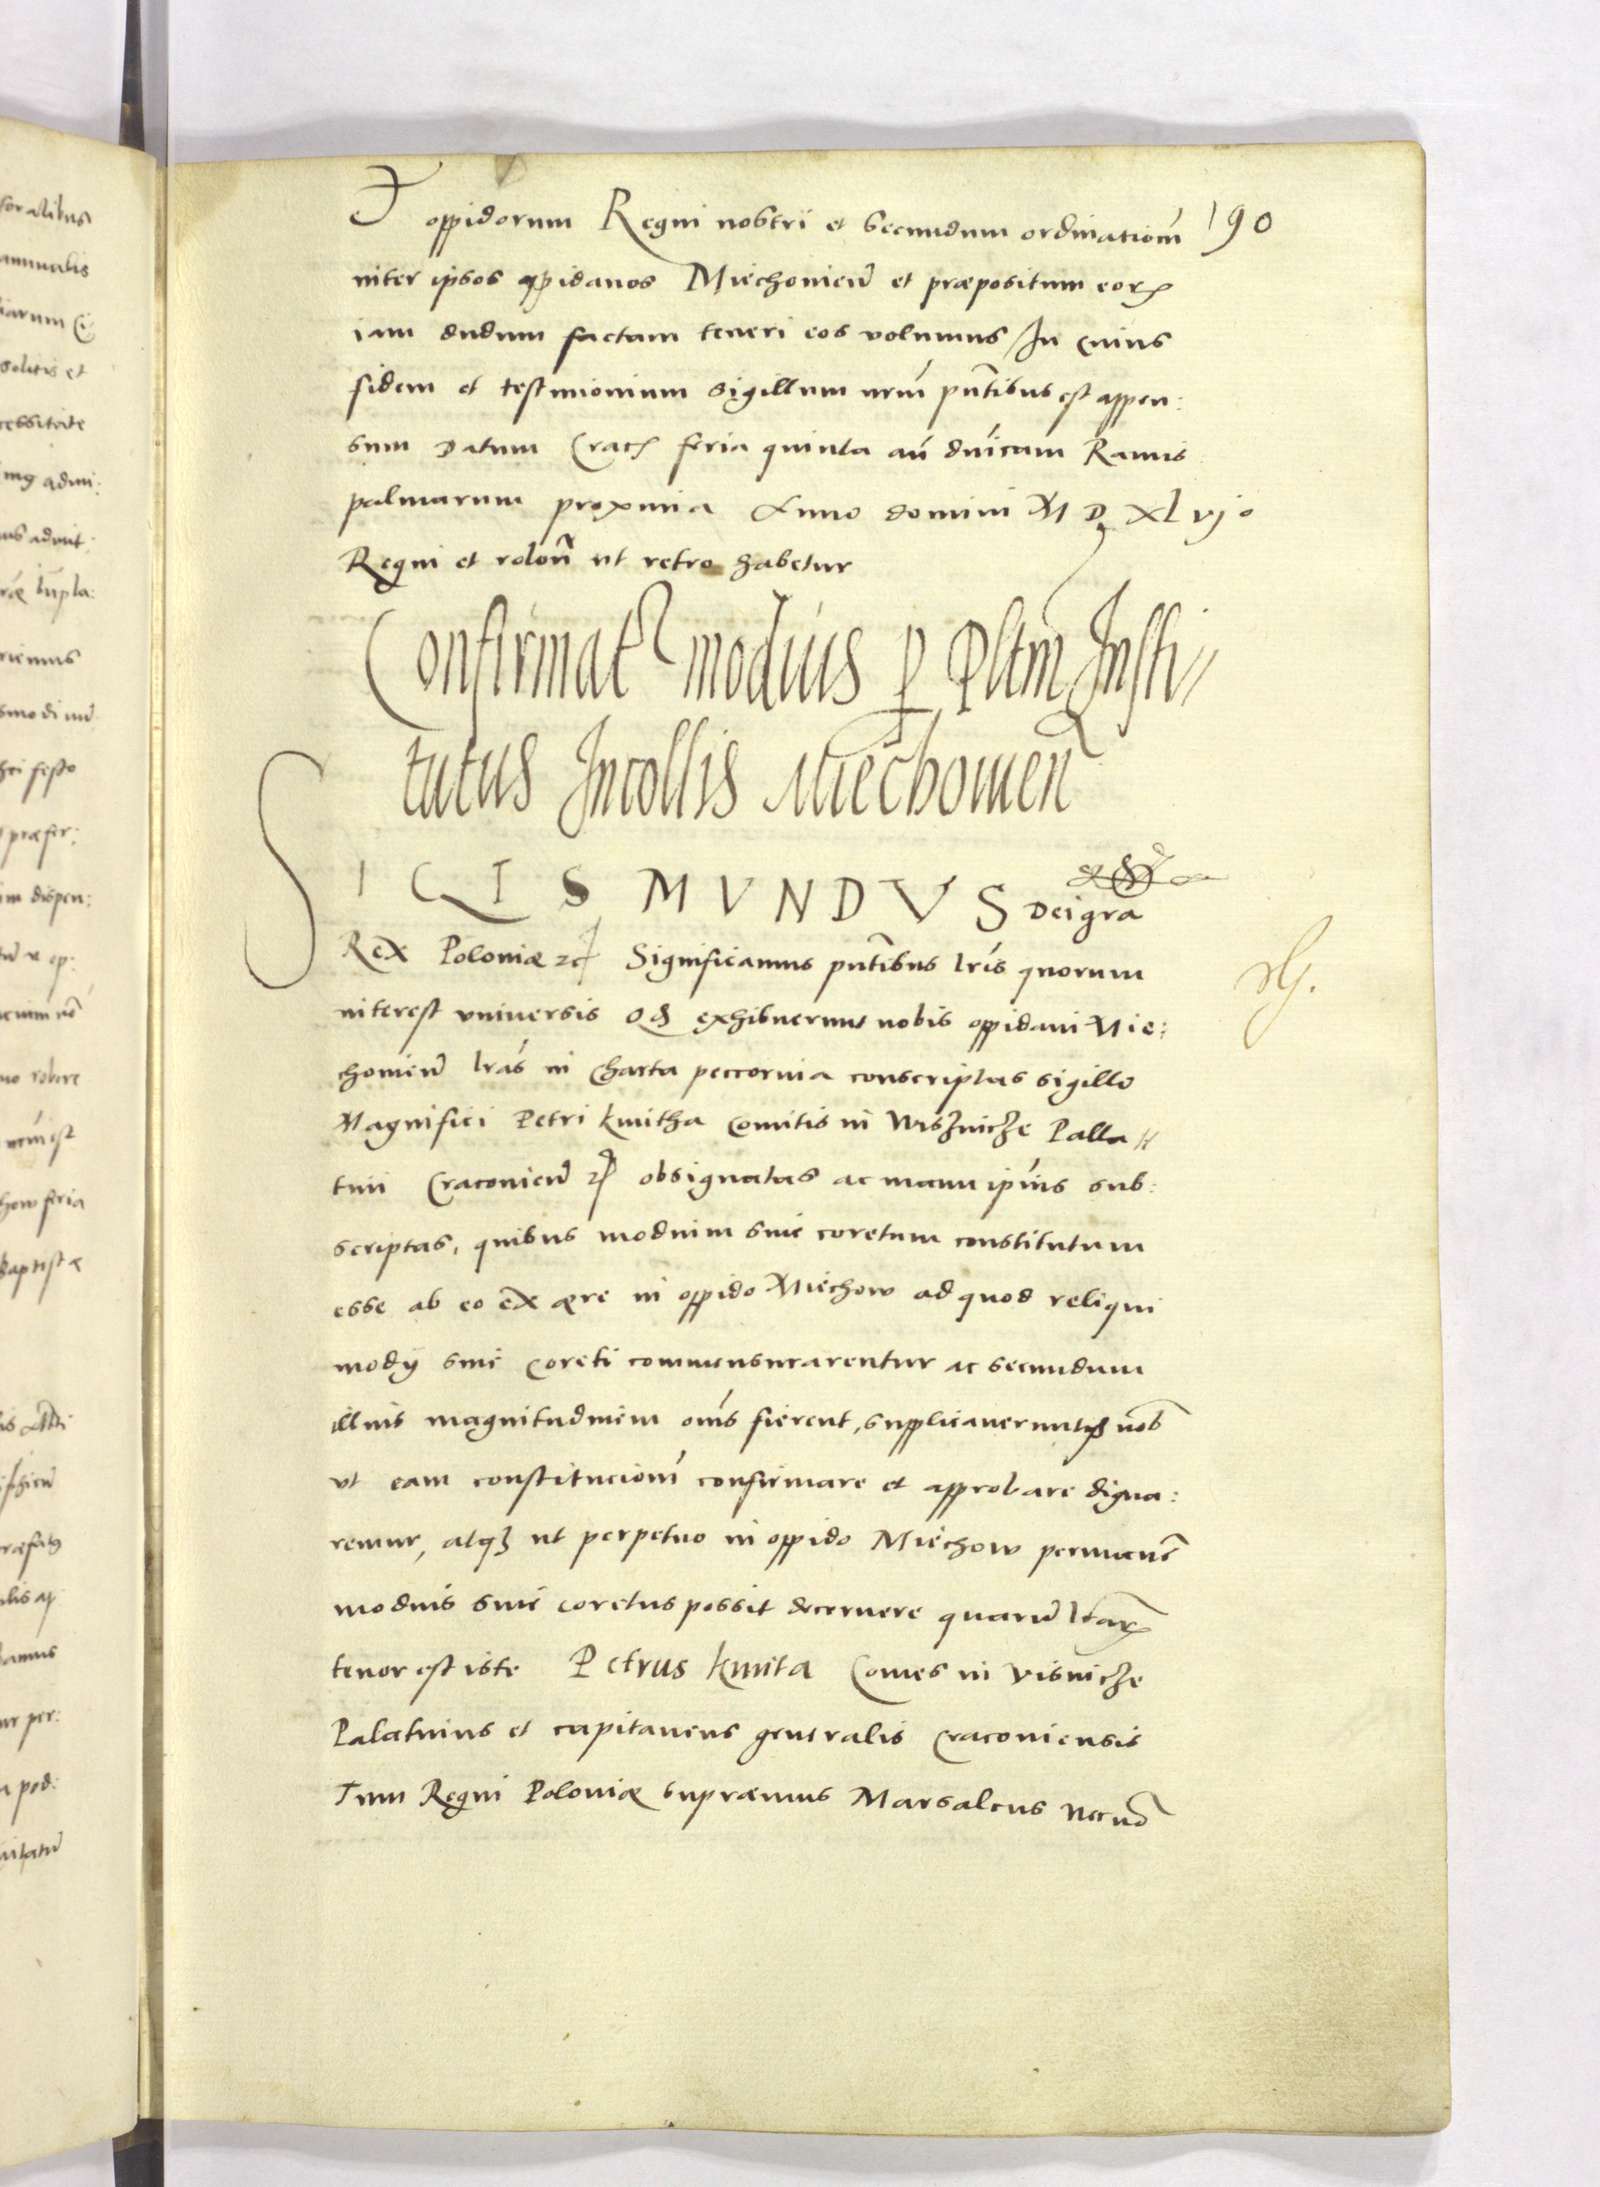 190
oppidorum Regni nostri et secundum ordinationẽ
inter ipsos oppidanos Miechoviens̃ et præpositum eorꝝ
iam dudum factam teneri eos volumus In cuius
fidem et testimonium sigillum nrũ pñtibus est appen:
sum Datum Crac̃ feria quinta añ dñicam Ramis
palmarum proxima Anno domini M D XLvjo
Regni et reloñ ut retro habetur
Confirmat᷑ modius ꝑ Pltm̃ Insti//
tutus Incollis Miechovieñ
SIGISMVNDVS Dei gra
Rex Poloniæ ꝛc Significamus pñtibus lr̃is quorum
interest vniversis Qd exhibuerunt nobis oppidani Mie:
choviens̃ lr̃as in charta peccorina conscriptas sigillo
Magnifici Petri kmitha Comitis in Wisznicze Palla //
tini Cracoviens̃ ꝛc obsignatas ac manu ipĩus sub:
scriptas, quibus modium sive coretum constitutum
esse ab eo ex ære in oppido Miechow ad quod reliqui
modij sive coreti commensurarentur ac secundum
illius magnitudinem oẽs fierent, supplicaveruntqꝫ nob̃
vt eam constitucionẽ confirmare et approbare digna:
remur, atqꝫ ut perpetuo in oppido Miechow permanẽs
modius sive coretus possit decernere quarũ lr̃arꝝ
tenor est iste Petrus kmita Comes in Visnicze
Palatinus et capitaneus generalis Cracoviensis
Tum Regni Poloniæ supræmus Marsalcus Necnõ